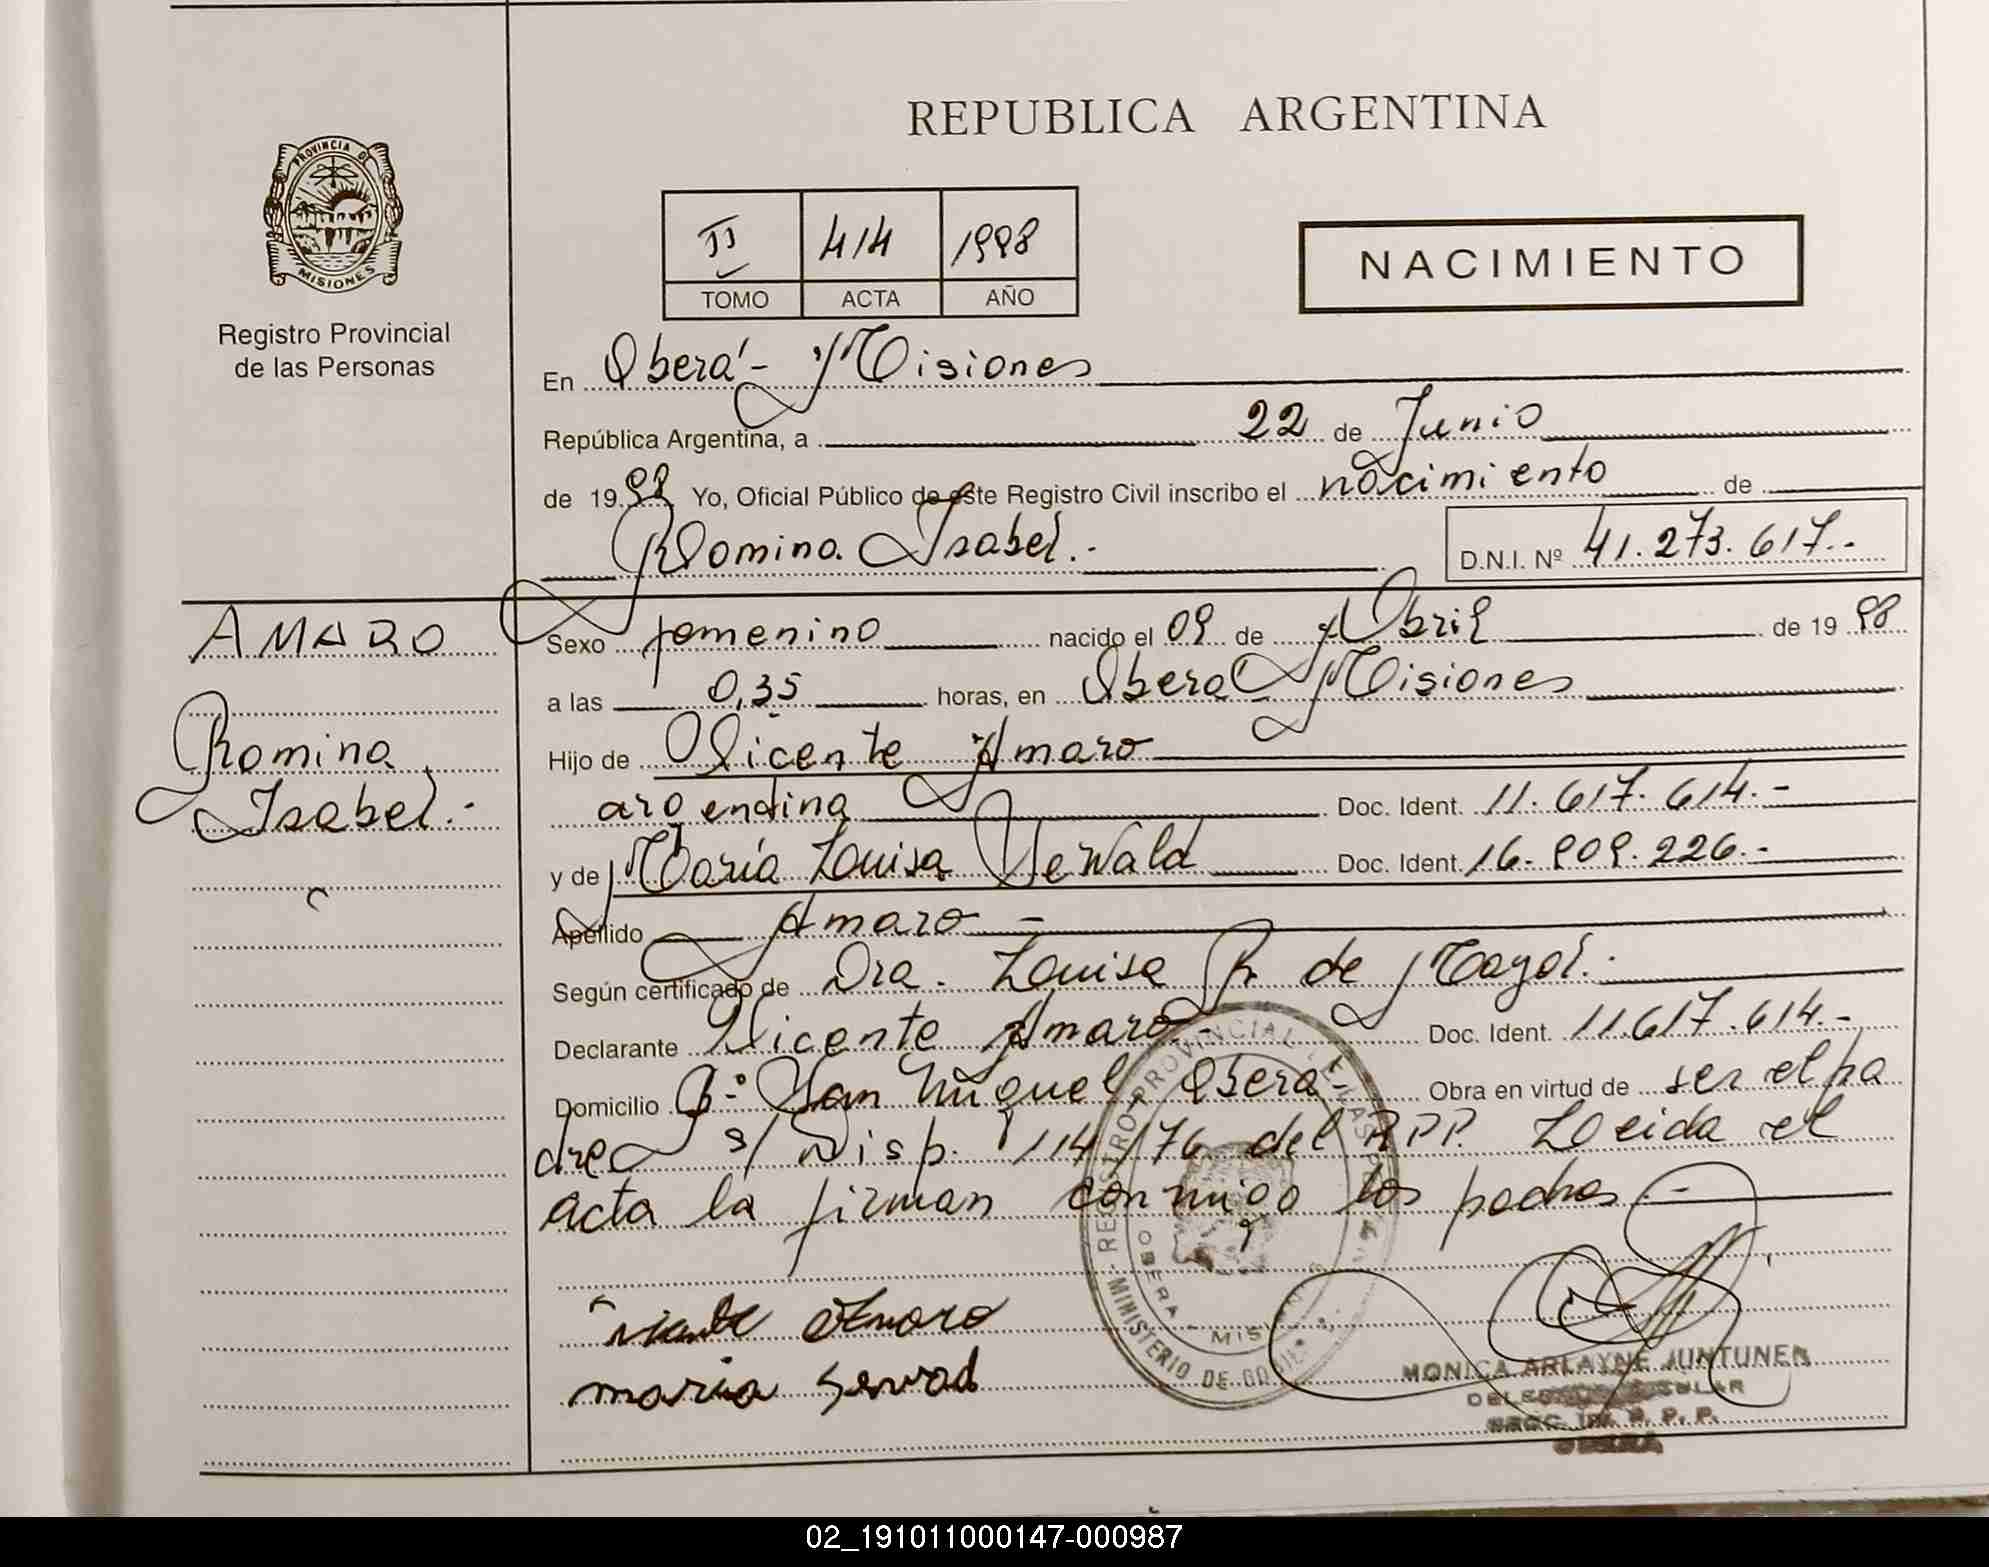 REPUBLICA ARGENTINA
PROVINCIA DE
MISIONES
Registro Provincial
de las Personas
II 414 1998
TOMO ACTA AÑO
NACIMIENTO
En Oberá - Misiones
República Argentina, a 22 de Junio
de 19 98 Yo, Oficial Público de este Registro Civil inscribo el nacimiento de
Romina Isabel.-
D.N.I. Nº 41.273.617.-
AMARO
Romina
Isabel.-
Sexo femenino nacido el 09 de Abril de 19 98
a las 0,35 horas, en Oberá Misiones
Hijo de Vicente Amaro
argentina Doc. Ident. 11.617.614.-
y de María Luisa Sewald Doc. Ident. 16.909.226.-
Apellido Amaro -
Según certificado de Dra. Luisa R. de Mayol.-
Declarante Vicente Amaro.- Doc. Ident. 11.617.614.-
Domicilio Bº San Miguel, Oberá- Obra en virtud de ser el pa
dre s/ Disp. 114/76 del RPP. Leida el
acta la firman conmigo los padres.-
REGISTRO PROVINCIAL DE LAS PERSONAS
OBERA - MISIONES
MINISTERIO DE GOBIERNO
Vicente Amaro
maria Sewad
MONICA ARLAYNE JUNTUNEN
R. P. P.
OBERA
02_191011000147-000987